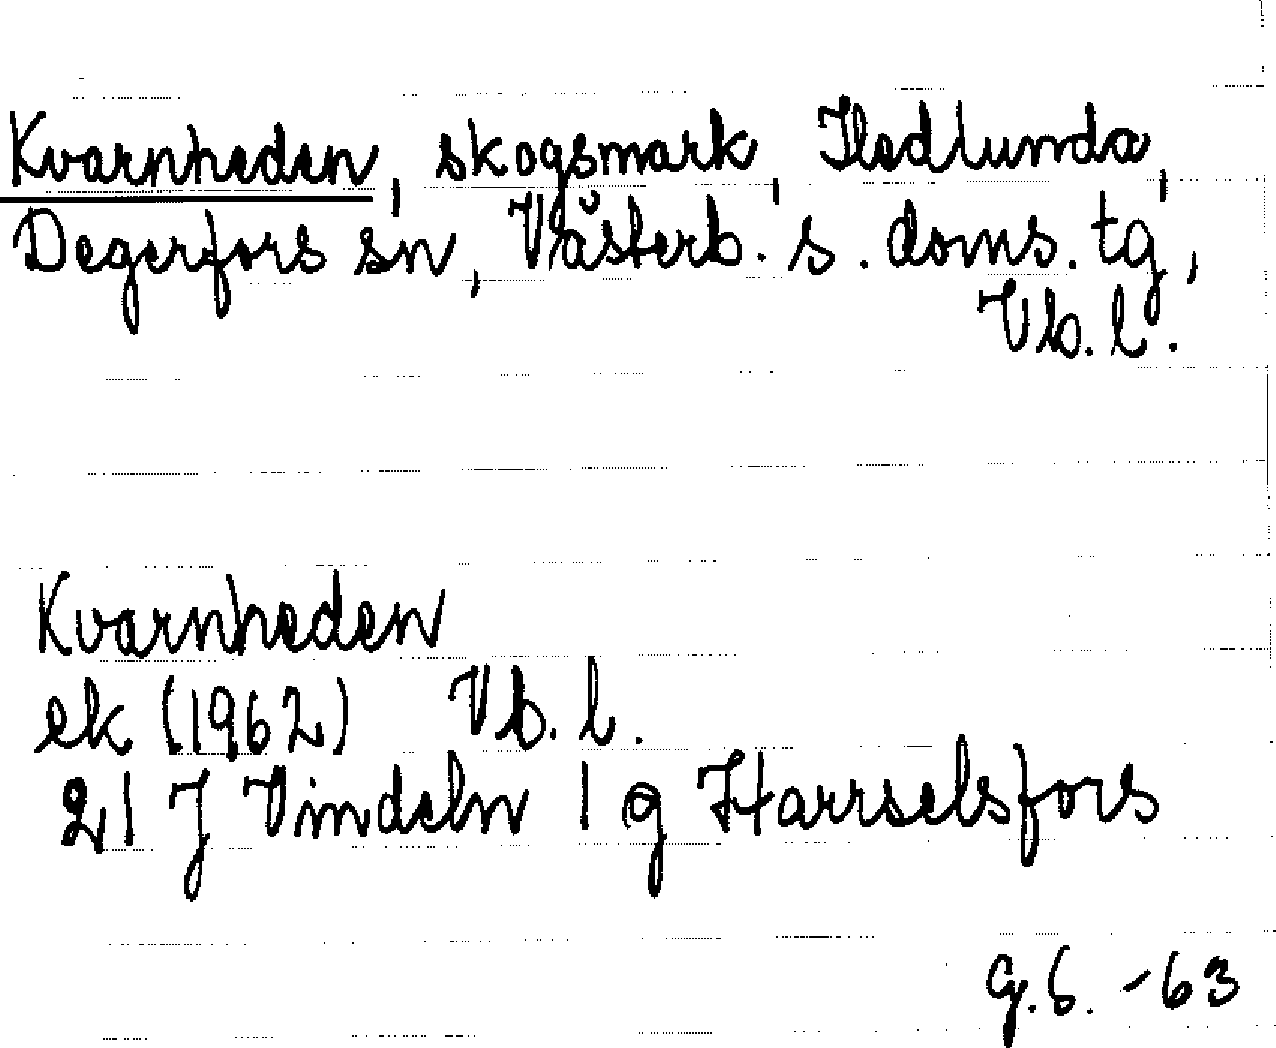 Kvarnheden, skogsmark, Hedlunda,
Degerfors sn, Västerb. s. doms. tg,
Vb. l.
Kvarnheden
ek (1962) Vb. l.
21 J Vindeln 1 g Harrselsfors
G.S. -63